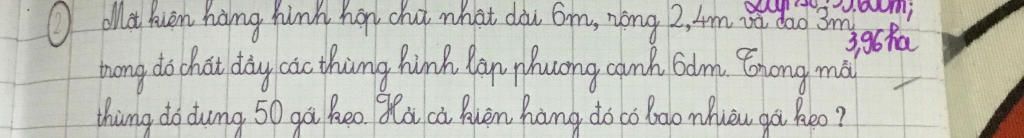 ② Một kiện hàng hình hộp chữ nhật dài 6m, rộng 2,4m và cao 3m,
3,96 ha
trong đó chất đầy các thùng hình lập phương cạnh 6dm. Trong mỗi
thùng đó đựng 50 gói kẹo. Hỏi cả kiện hàng đó có bao nhiêu gói kẹo?